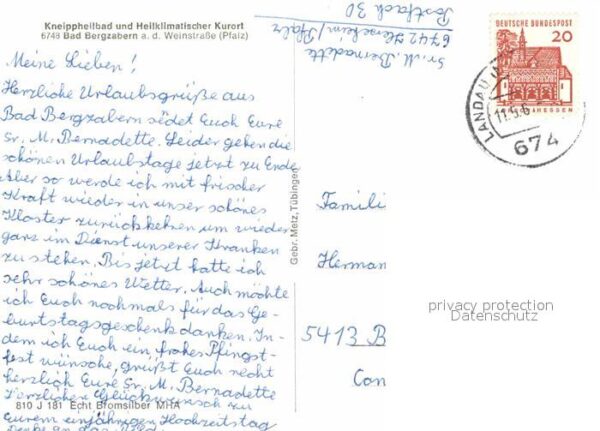 Kneippheilbad und Heilklimatischer Kurort
6748 Bad Bergzabern a. d. Weinstraße (Pfalz)
Meine Lieben!
Herzliche Urlaubsgrüße aus
Bad Bergzabern södet Euch Eure
Sr. M. Bernadette. Leider gehen die
schönen Urlaubstage jetzt zu Ende
Aber so werde ich mit frischer
Kraft wieder in unser schönes
Kloster zurückkehren um wieder
ganz im Dienst unserer Kranken
zu stehen. Bis jetzt hatte ich
sehr schönes Wetter. Auch möchte
ich Euch nochmals für das Ge-
burtstagsgeschenk danken. In-
dem ich Euch ein frohes Pfingst-
fest wünsche, grüßt Euch recht
herzlich Eure Sr. M. Bernadette
Herzlichen Glückwunsch zu
810 J 181 Echt Bromsilber MHA
Eurem einjährigen Hochzeitstag
Gebr. Metz, Tübingen
Sr. M. Bernadette
6742 Herxheim/Pfalz
Postfach 30
DEUTSCHE BUNDESPOST
20
LANDAU
11.5.6
674
HESSEN
Famili
Herman
5413 B
Con
privacy protection
Datenschutz